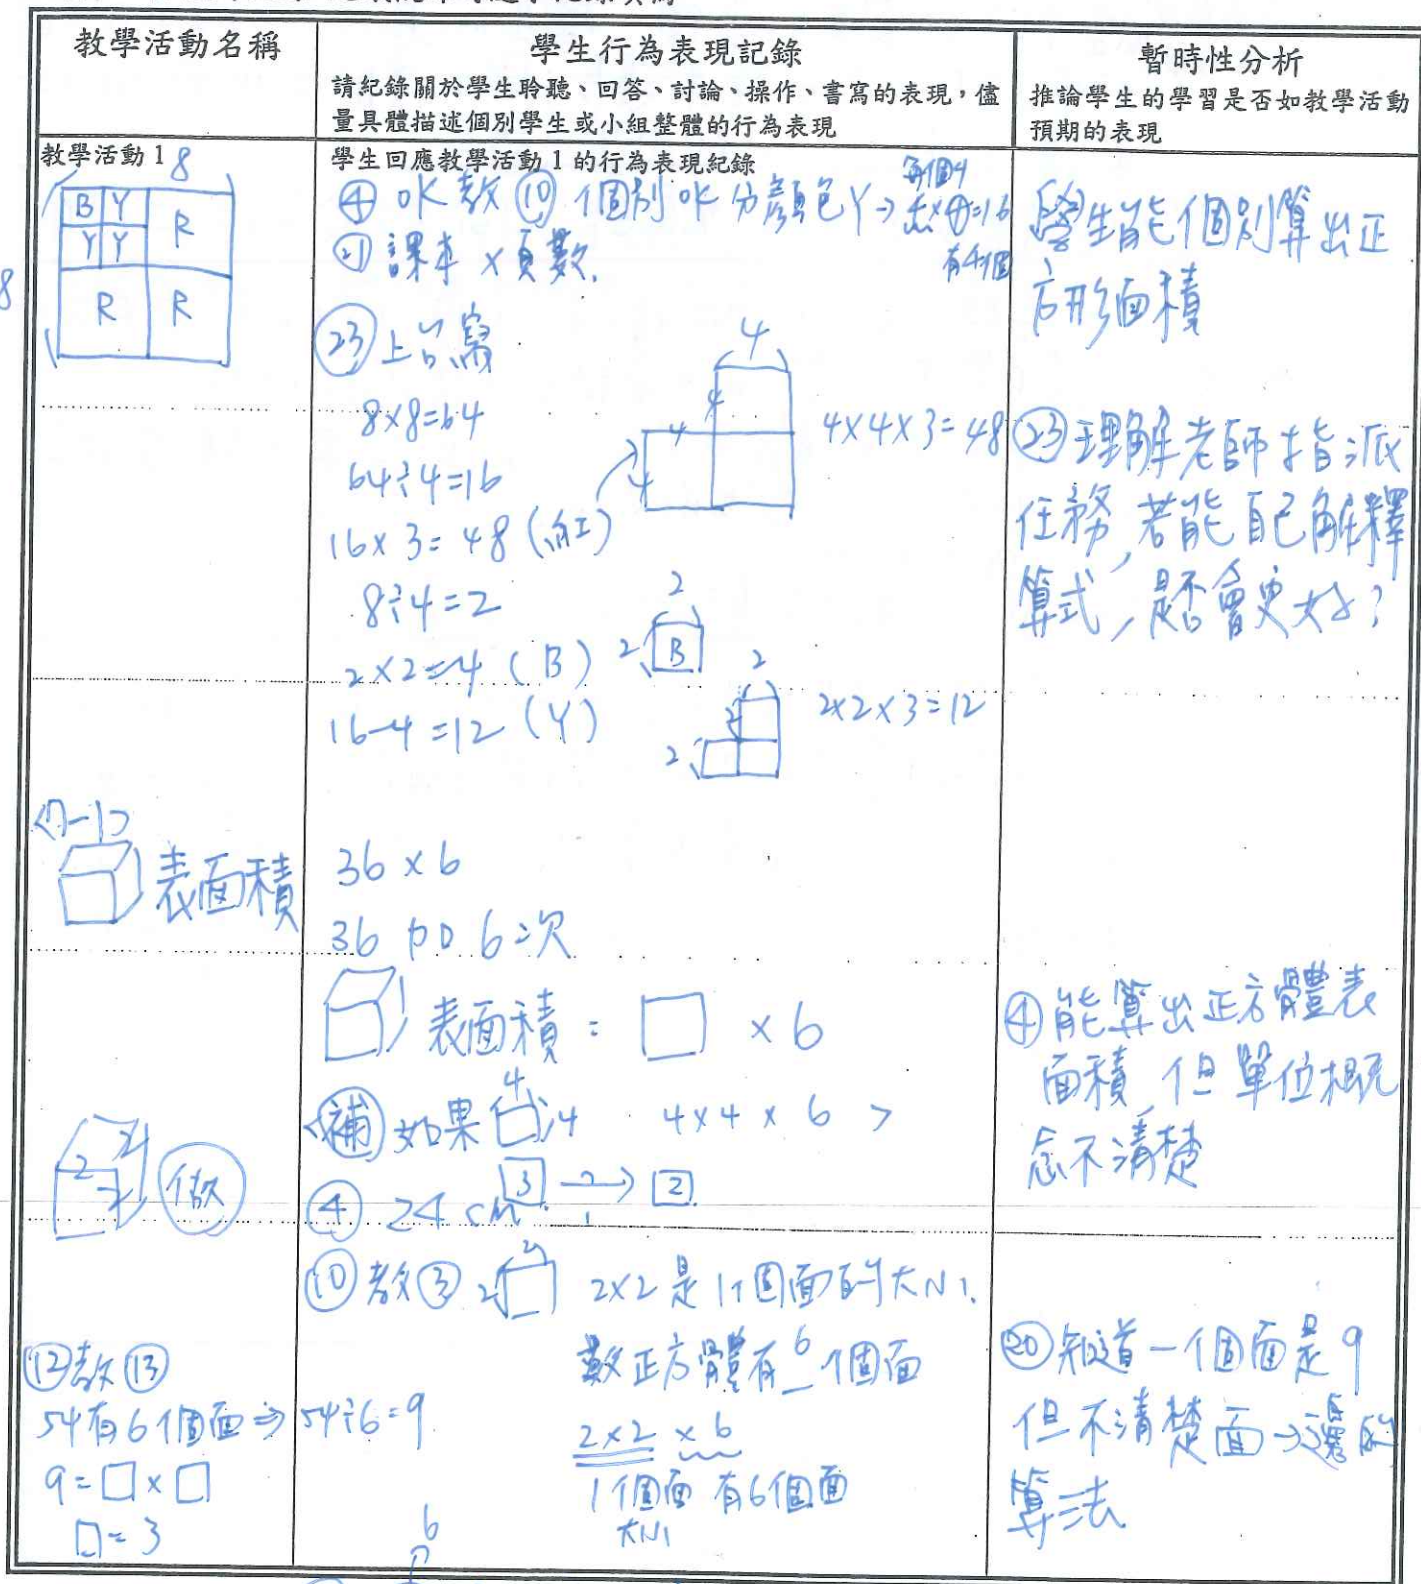 教學活動名稱
學生行為表現記錄
請紀錄關於學生聆聽、回答、討論、操作、書寫的表現，儘
量具體描述個別學生或小組整體的行為表現
暫時性分析
推論學生的學習是否如教學活動
預期的表現
教學活動1
8
8
B Y R
Y Y
R R
學生回應教學活動1的行為表現紀錄
④ ok 教 ⑩ 個別 ok 分顏色 Y→
=16
有4個
㉑ 課本 x 頁數.
㉓ 上台寫
8×8=64
64÷4=16
16×3=48(紅)
8÷4=2
2×2=4(B)
16-4=12(Y)
4
4
4
4
4×4×3=48
2
2 B
2
2
2
2×2×3=12
學生能個別算出正
方形面積
㉓理解老師指派
任務,若能自己解釋
算式,是否會更好?
<7-1>
表面積
36×6
36加6次
表面積= □ ×6
<補 如果 4 4 4×4×6>
3 → 2
④ 24 cm
2 2 做
④能算出正方體表
面積,但單位概
念不清楚
⑩教③ 2 2 2×2是1個面的大小.
數正方體有6個面
2×2 ×6
1個面 有6個面
大小
⑫教⑬
54有6個面⇒ 54÷6=9
9=□×□
□=3
6
⑳知道一個面是9
但不清楚面→邊的
算法